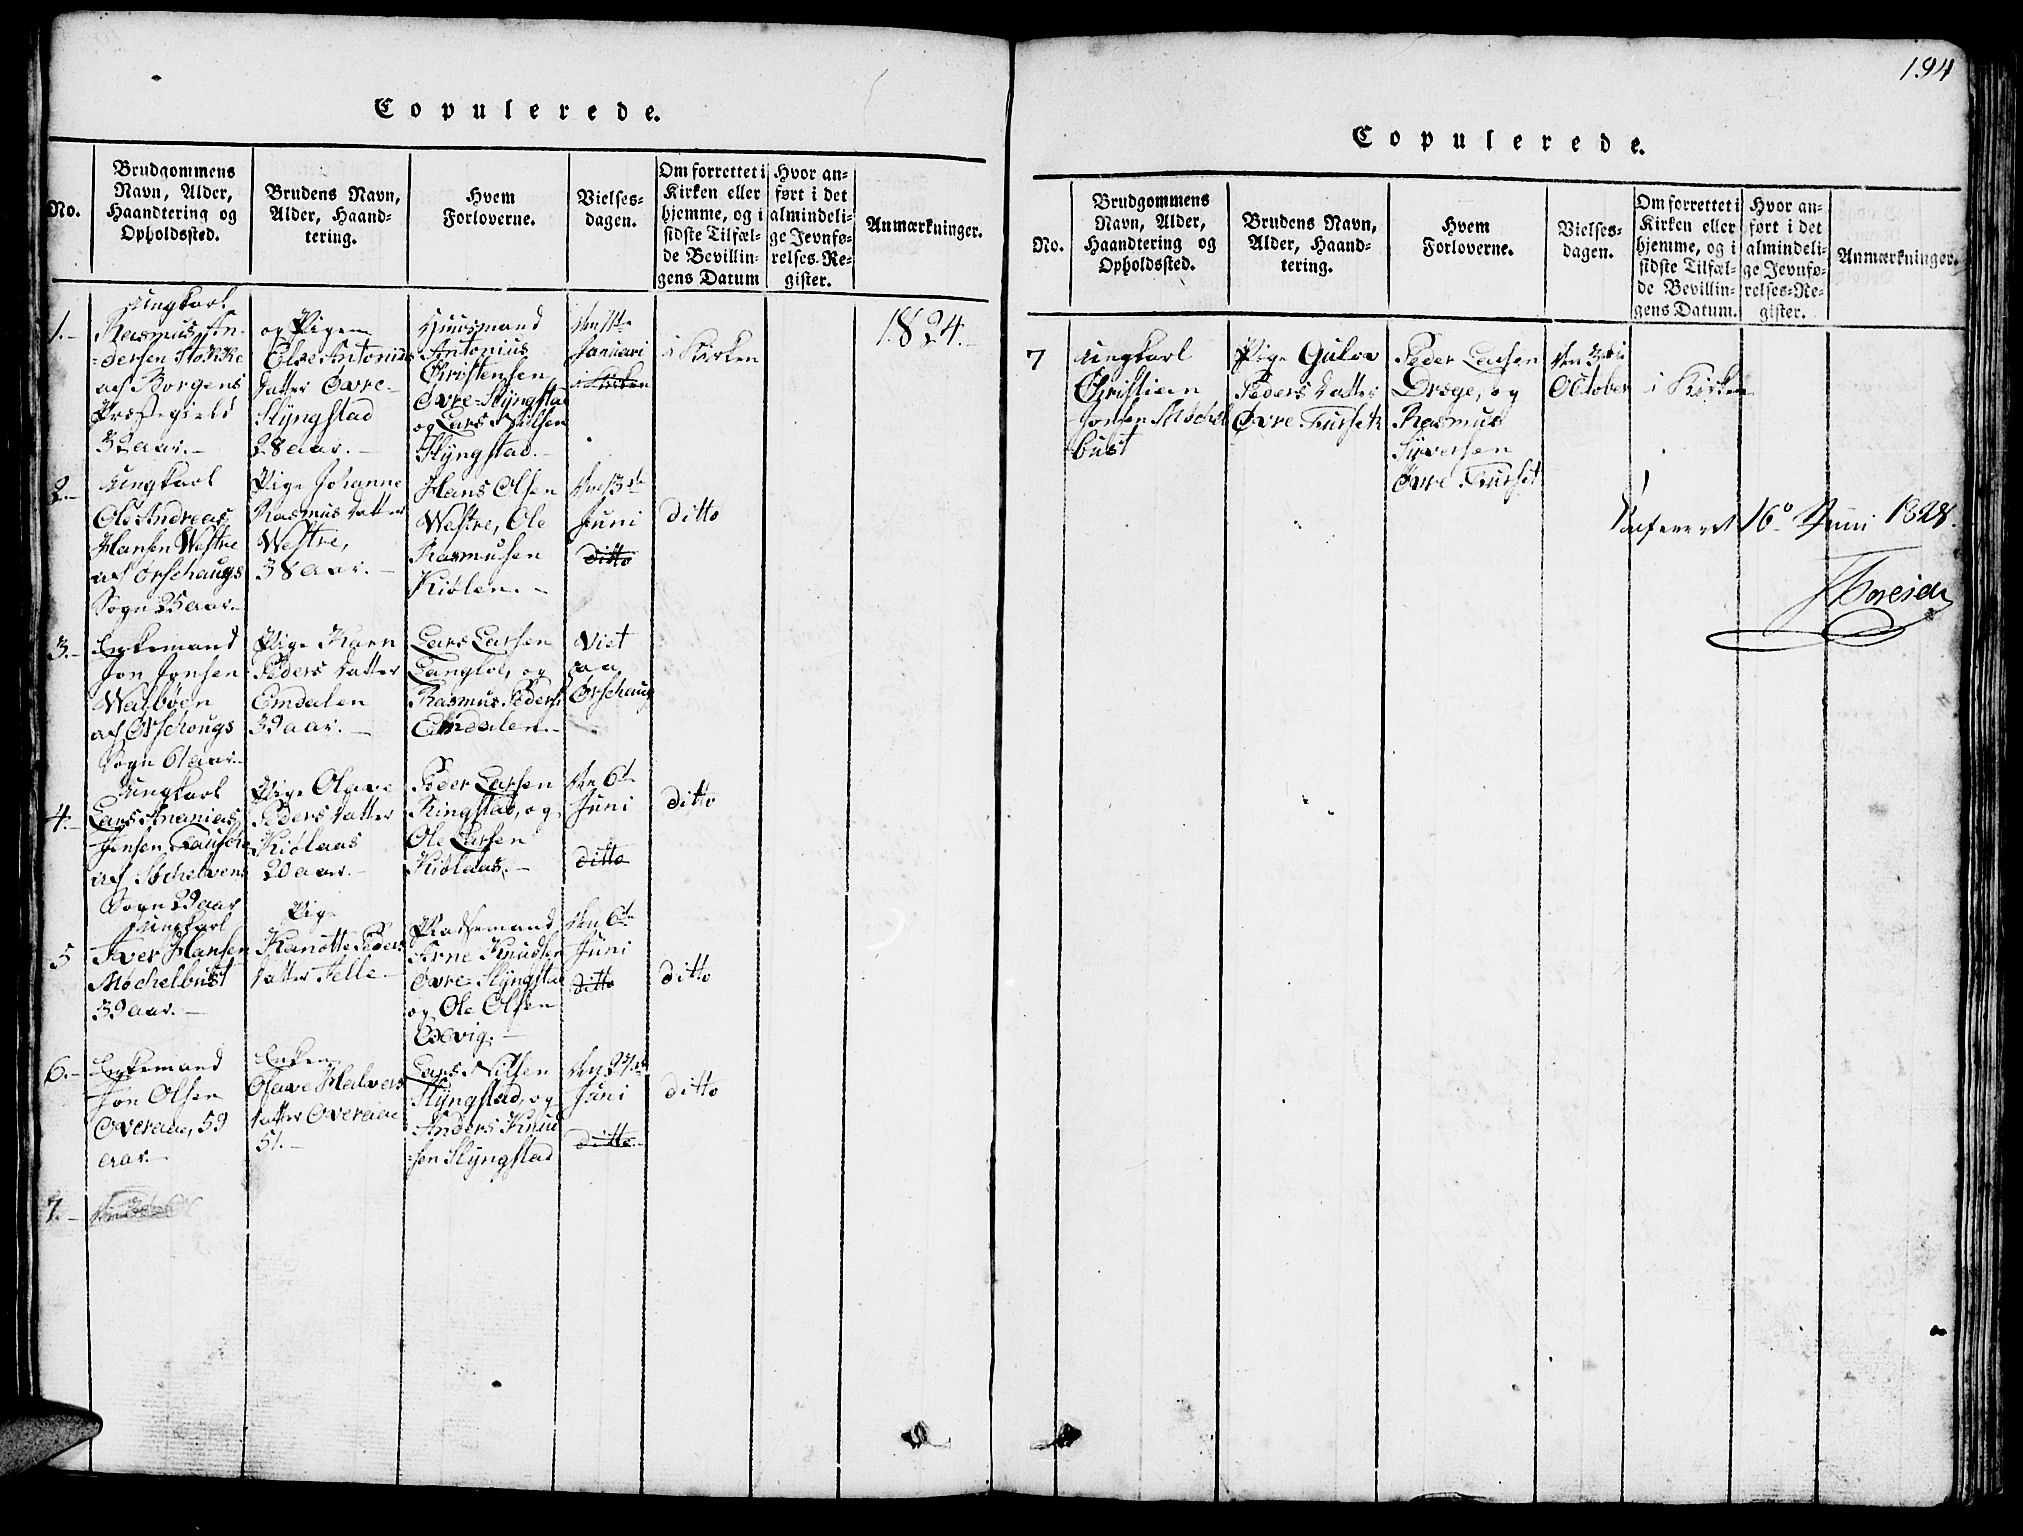 Copulerede.
No.
Brudgommens
Navn, Alder,
Haandtering og
Opholdssted.
Brudens Navn,
Alder, Haand-
tering.
Hvem
Forloverne.
Vielses-
dagen.
Om forrettet i
Kirken eller
hjemme, og i
sidste Tilfæl-
de Bevillin-
gens Datum
Hvor an-
ført i det
almindeli-
ge Jevnfø-
relses-Re-
gister.
Anmærkninger.
1824.-
1.-
Ungkarl
Rasmus An-
=dersen Stokke
af Borgens
Præstegield
32 aar.-
og Pigen
Elae Antonius
datter Øvre-
Slÿngstad
28 aar.-
Huusmand
Antonius
Christensen
Øvre-Slÿngstad
og Lars Nielsen
Slÿngstad.-
den 11te
Januari
i Kirken
i Kirken
2.-
Ungkarl
Ole Andreas
Hansen Westre
af Ørschaugs
Sogn 25 aar.-
Pige Johanne
Rasmus datter
Westre,
38 aar.-
Hans Olsen
Westre, Ole
Rasmusen
Kiølen.-
den 13de
Juni
ditto
ditto
3.-
Enkemand
Jon Jonsen
Walbøen
af Ørschougs
Sogn 61 aar.-
Pige Karn
Peders datter
Emdalen
39 aar.-
Lars Larsen
Langloe, og
Rasmus Peders
Emdalen.-
Viet
paa
Ørschaug
4.-
Ungkarl
Lars Ananias
Jensen
af Søchelvens
Sogn 29 aar
Pige Olave
Peders datter
Kiølaas
20 aar.-
Peder Larsen
Ringstad, og
Ole Larsen
Kiølaas.-
den 6te
Juni
ditto
ditto
5
Ungkarl
Iver Hansen
Mochelbust
39 aar.-
Pige
Kanutte Peders
datter Felle-
Pladsemand
Arne Knudsen
Øvre-Slÿngstad
og Ole Olsen
Oxvig.-
den 6te
Juni
ditto
ditto
6.-
Enkemand
Jon Olsen
Overaae, 59
aar.-
Enken
Olave Halvers
datter Overaae
51.-
Lars Nilsen
Slÿngstad, og
Anders Knud
=sen Slÿngstad
den 27de
Juni
ditto
ditto
7.-
194
Copulerede.
No.
Brudgommens
Navn, Alder,
Haandtering og
Opholdssted.
Brudens Navn,
Alder, Haand-
tering.
Hvem
Forloverne.
Vielses-
dagen.
Om forrettet i
Kirken eller
hjemme, og i
sidste Tilfæl-
de Bevillin-
gens Datum.
Hvor an-
ført i det
almindeli-
ge Jevnfø-
relses-Re-
gister.
Anmærkninger.
7
Ungkarl
Christian
Jonsen Mochel
bust
Pige Gulva
Peders datter
Øvre Furseth
Peder Larsen
Drøge, og
Rasmus
Syversen
Øvre Furset
den 3die
October
i Kirken
16 Juni 1828.